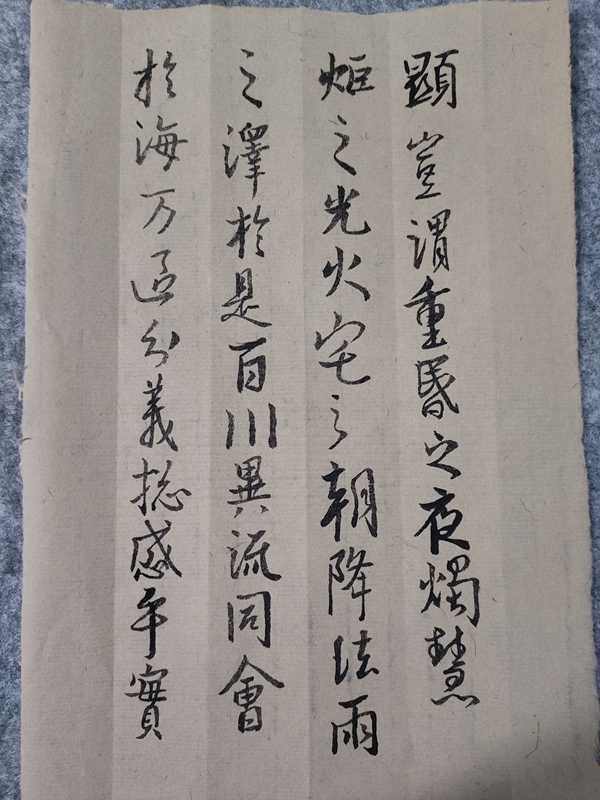 顯豈謂重昬之夜燭慧
炬之光火宅之朝降法雨
之澤於是百川異流同會
於海万區分義揔感乎實